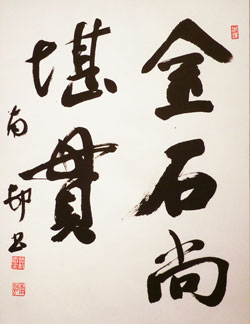 金石尚
堪貫
南邨书